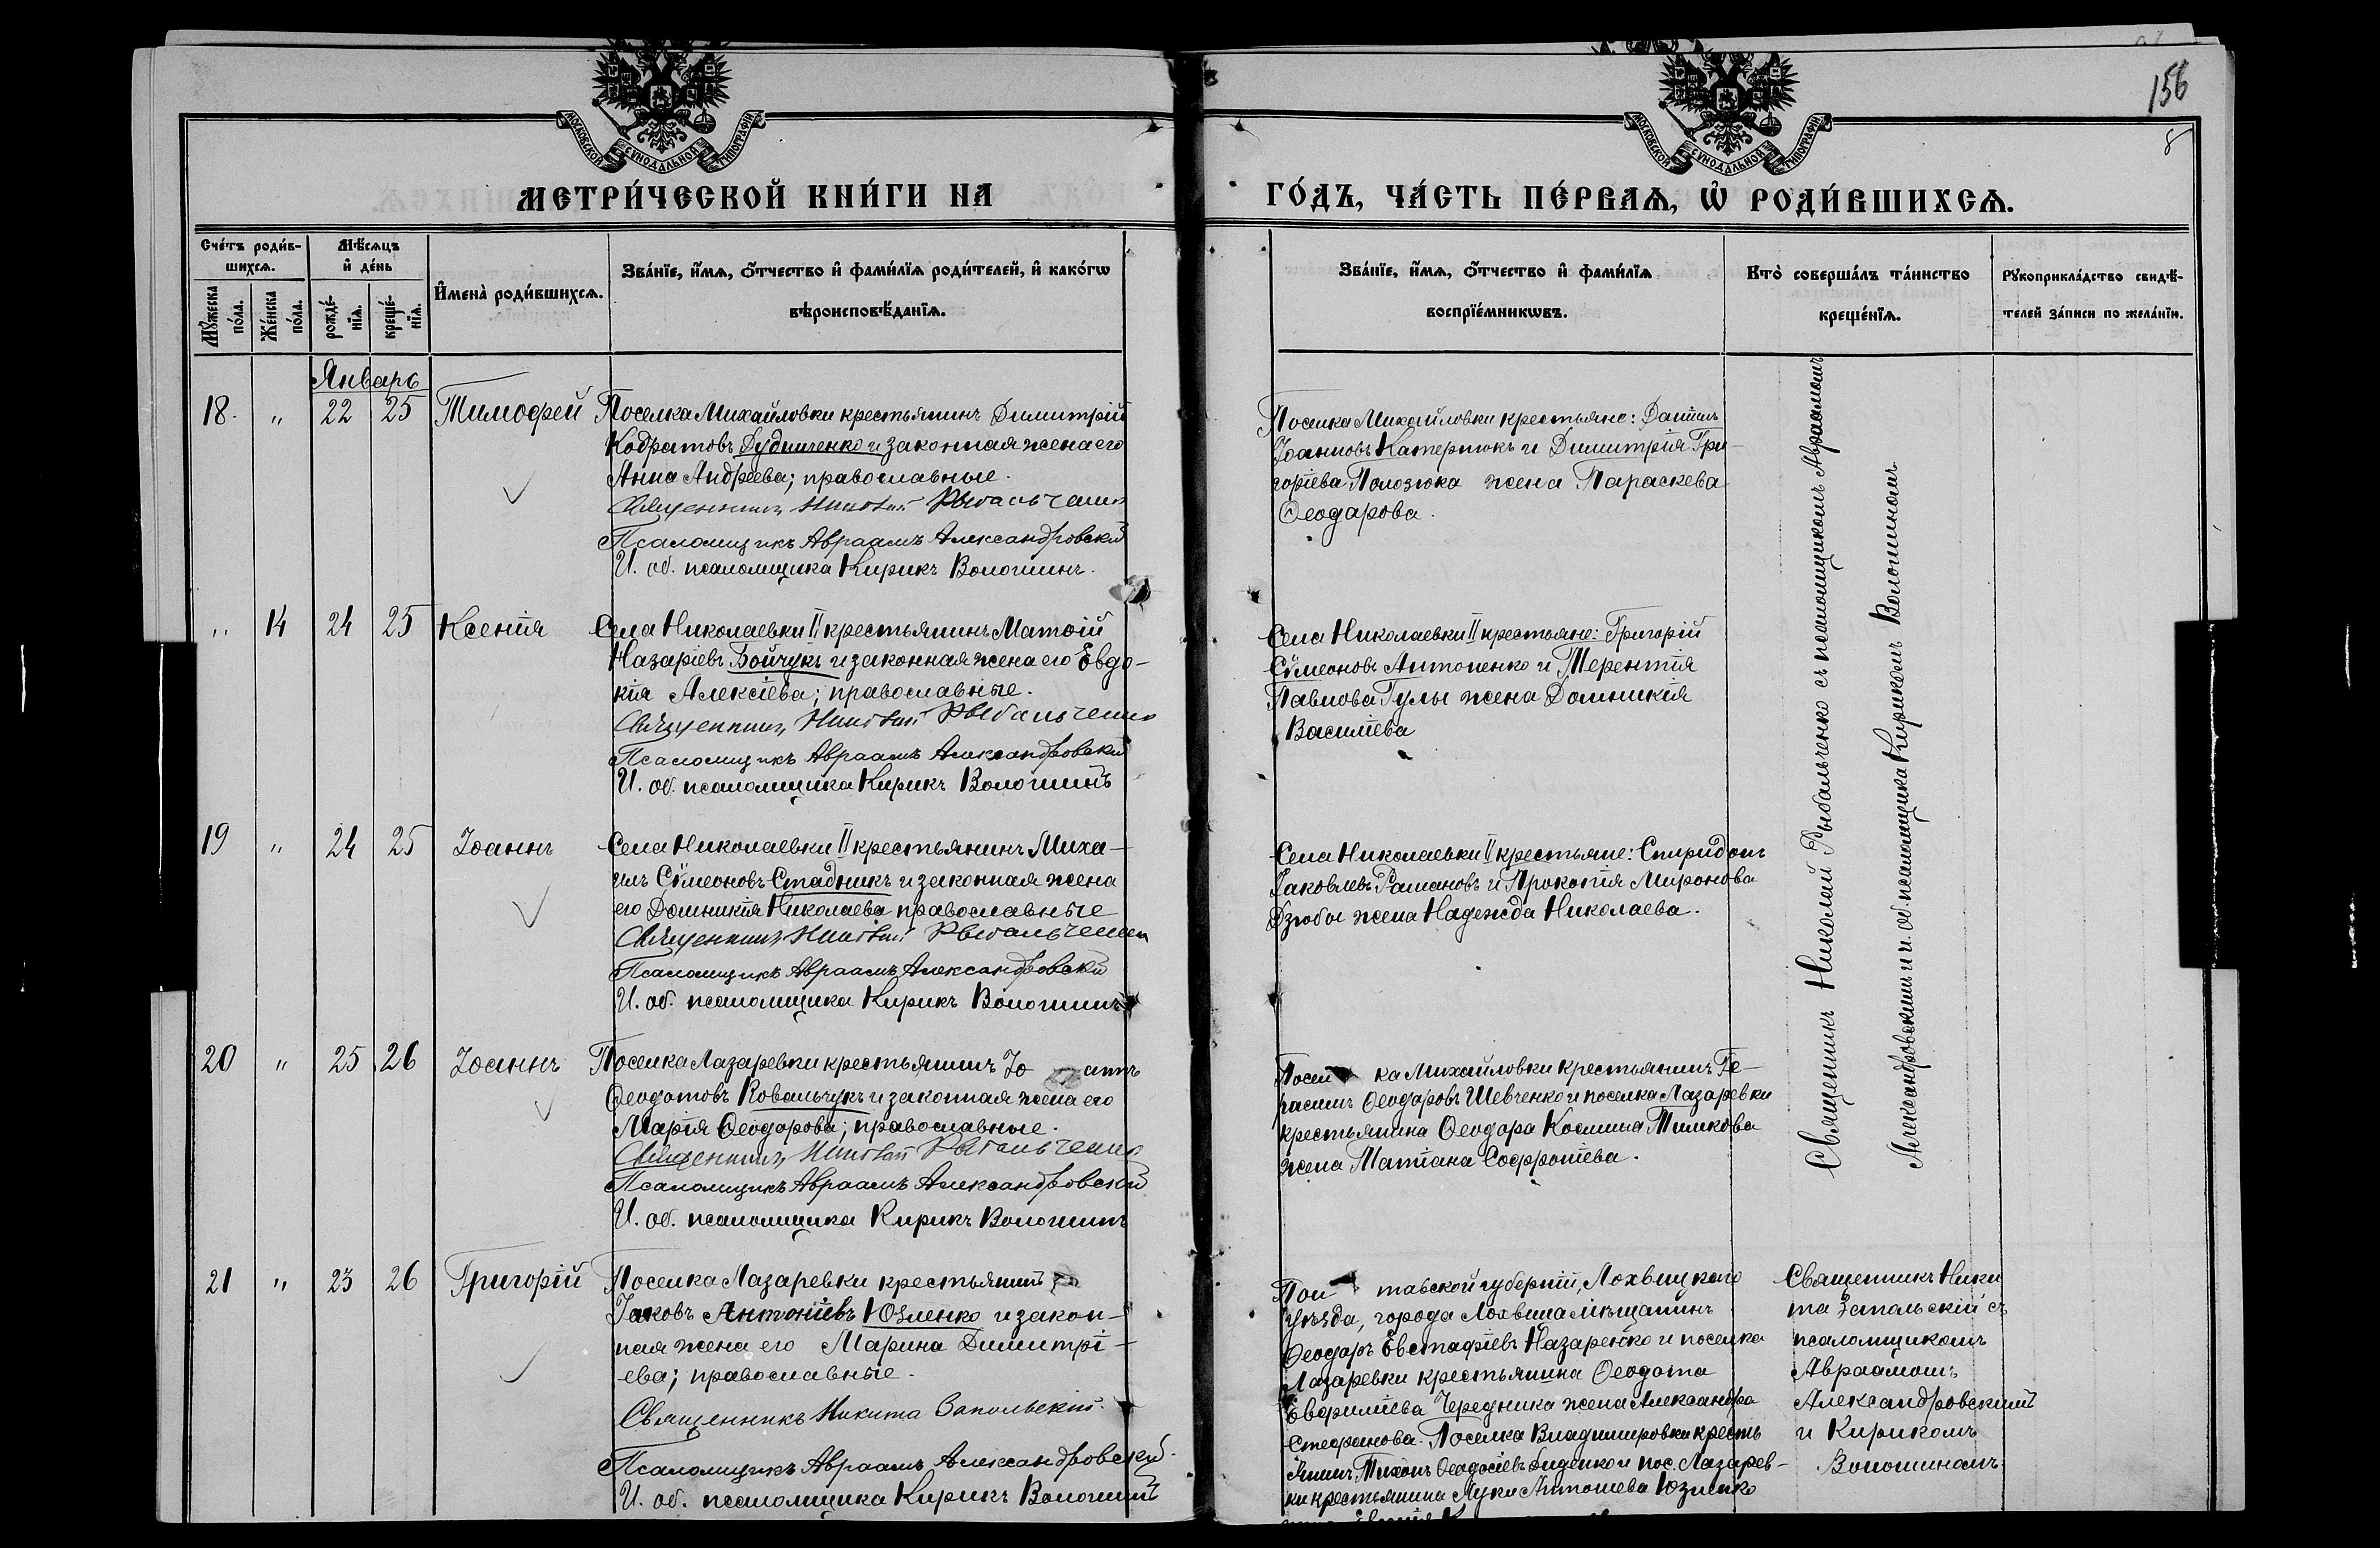 156
8
МОСКОВСКОЙ СѴНОДАЛЬНОЙ ТИПОГРАФІИ
МОСКОВСКОЙ СѴНОДАЛЬНОЙ ТИПОГРАФІИ
МЕТРИ́ЧЕСКОЙ КНИ́ГИ НА
ГО́ДЪ, ЧА́СТЬ ПЕ́РВАѦ, Ѡ҆ РОДИ́ВШИХСѦ.
Сче́тъ роди́в-
шихсѧ.
Мѣ́сѧцъ
и҆ де́нь
Мꙋ́жеска
по́ла.
Же́нска
по́ла.
рожде́-
нїѧ.
креще́-
нїѧ.
И҆мена̀ роди́вшихсѧ.
Зва́нїе, и҆́мѧ, ѻ҆́тчество и҆ фами́лїѧ роди́телей, и҆ како́гѡ
вѣроисповѣ́данїѧ.
Зва́нїе, и҆́мѧ, ѻ҆́тчество и҆ фами́лїѧ
воспрїе́мникѡвъ.
Кто̀ соверша́лъ та́инство
креще́нїѧ.
Рꙋкоприкла́дство свидѣ́-
телей за́писи по жела́нїю.
Январь
18. " 22 25 Тимофей
Поселка Михайловки крестьянинъ Димитрій
Кодратовъ Дудниченко и законная жена его
Анна Андреева; православные.
Священникъ Николай Рыбальченко
Псаломщикъ Авраамъ Александровскій
И. об. псаломщика Кирикъ Волошинъ.
Поселка Михайловки крестьяне: Даніилъ
Іоанновъ Катернюкъ и Димитрія Гри-
горіева Полозюка жена Параскева
Ѳеодорова.
" 14 24 25 Ксенія
Села Николаевки II крестьянинъ Матѳій
Назаріевъ Бойчукъ и законная жена его Евдо-
кія Алексіева; православные.
Священникъ Николай Рыбальченко
Псаломщикъ Авраамъ Александровскій
И. об. псаломщика Кирикъ Волошинъ
Села Николаевки II крестьяне: Григорій
Сѵмеоновъ Антоненко и Терентія
Павлова Гулы жена Домникія
Василіева
19 " 24 25 Іоаннъ
Села Николаевки II крестьянинъ Миха-
илъ Сѵмеоновъ Стадникъ и законная жена
его Домникія Николаева православные
Священникъ Николай Рыбальченко
Псаломщикъ Авраамъ Александровскій
И. об. псаломщика Кирикъ Волошинъ
Села Николаевки II крестьяне: Спиридонъ
Іаковлевъ Рамановъ и Прокопія Миронова
Дзюбы жена Надежда Николаева.
20 " 25 26 Іоаннъ
Поселка Лазаревки крестьянинъ Іо аннъ
Ѳеодотовъ Ковальчукъ и законная жена его
Марія Ѳеодорова; православные.
Священникъ Николай Рыбальченко
Псаломщикъ Авраамъ Александровскій
И. об. псаломщика Кирикъ Волошинъ
Посел ка Михайловки крестьянинъ Ге-
расимъ Ѳеодоровъ Шевченко и поселка Лазаревки
крестьянина Ѳеодора Космина Тимкова
жена Татіана Софроніева.
Священникъ Николай Рыбальченко съ псаломщикомъ Авраамомъ
Александровскимъ и и. об. псаломщика Кирикомъ Волошиномъ.
21 " 23 26 Григорій
Поселка Лазаревки крестьянинъ
Іаковъ Антоніевъ Юзленко и закон-
ная жена его Марина Димитрі-
ева; православные.
Священникъ Никита Запольскій.
Псаломщикъ Авраамъ Александровскій.
И. об. псаломщика Кирикъ Волошинъ
Пол тавской губерніи, Лохвицкаго
уѣзда, города Лохвица мѣщанинъ
Ѳеодоръ Евстафіевъ Назаренко и поселка
Лазаревки крестьянина Ѳеодота
Евфиміева Чередника жена Александра
Стефанова. Поселка Владимировки кресть
янинъ Тихонъ Ѳеодосіевъ Диденко и пос. Лазарев-
ки крестьянина Луки Антоніева Юзленко
Священникъ Ники
та Запольскій съ
псаломщикомъ
Авраамомъ
Александровскимъ
и Кирикомъ
Волошиномъ.